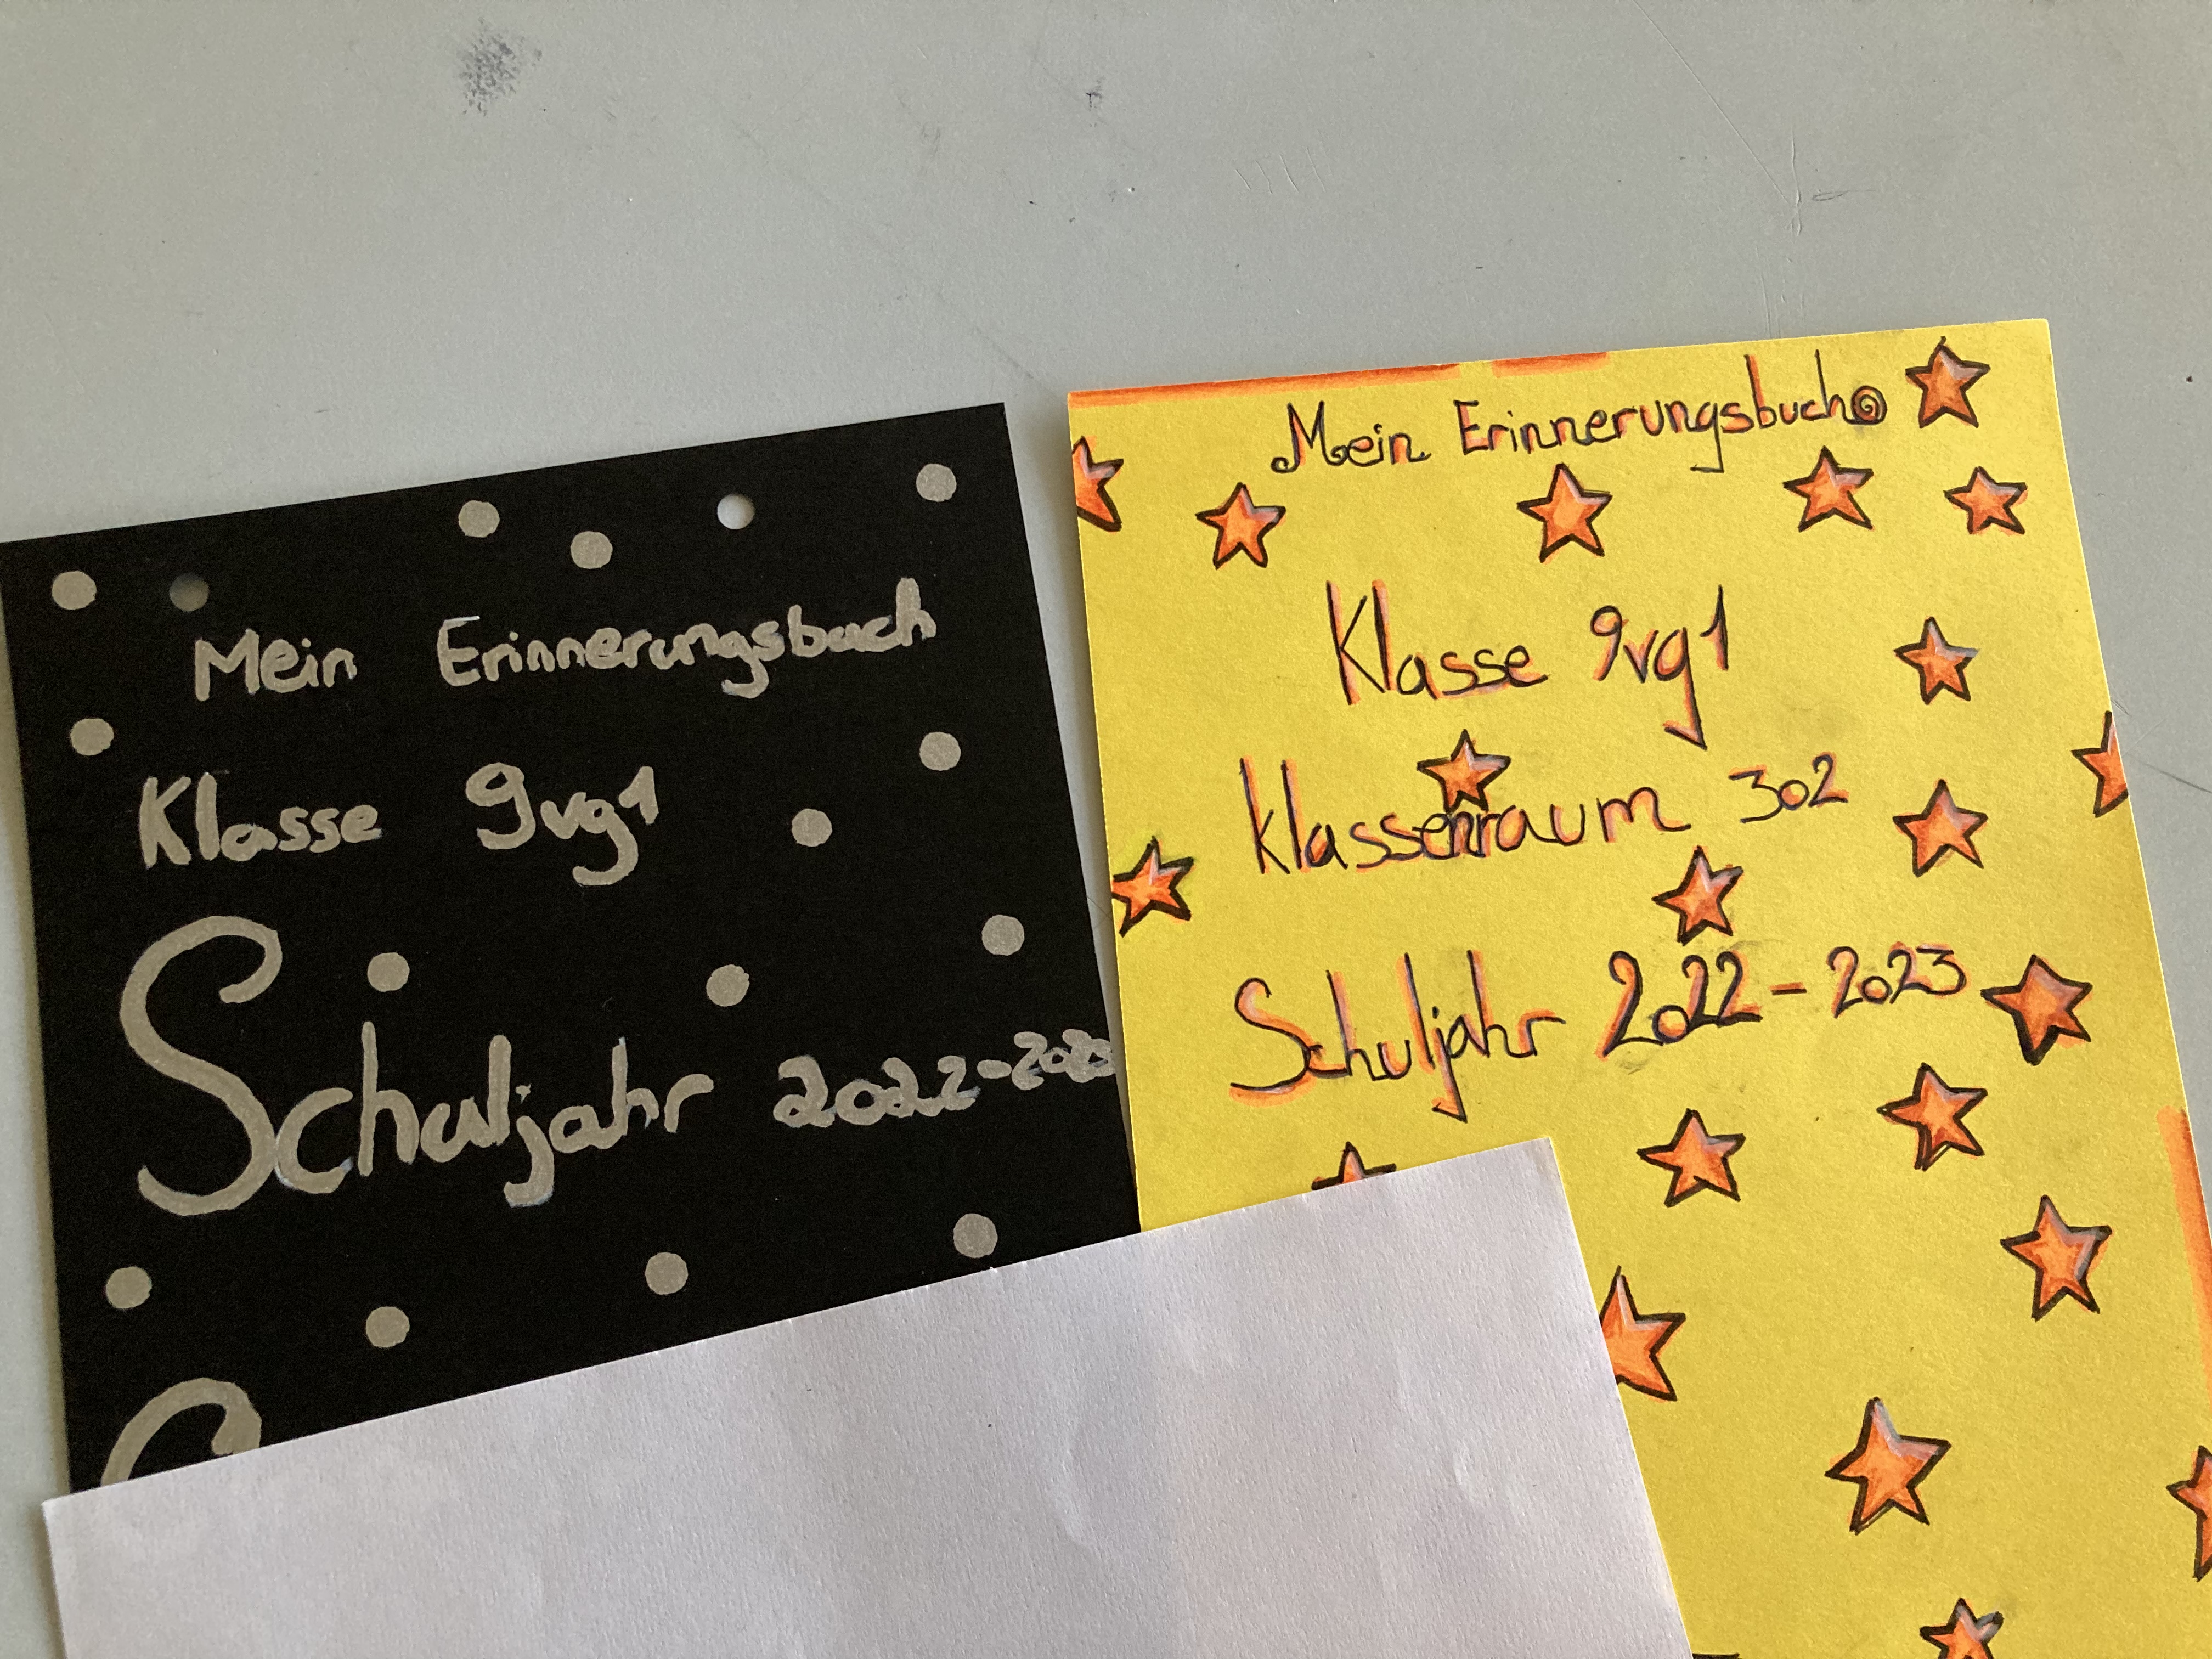 Mein Erinnerungsbuch
Klasse 9vg1
Schuljahr 2022-2023
Mein Erinnerungsbuch
Klasse 9vg1
Klassenraum 302
Schuljahr 2022-2023